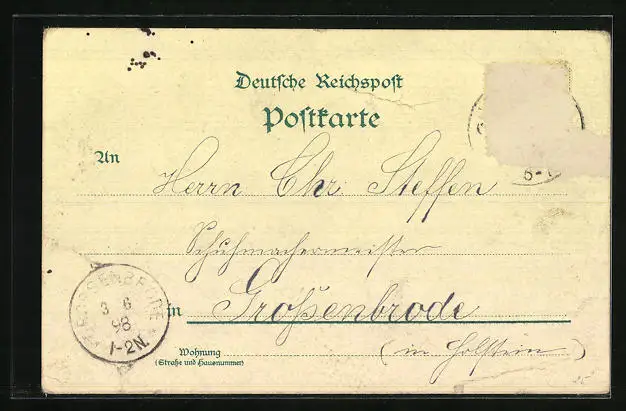 Deutsche Reichspost
Postkarte
An
Herrn Chr. Steffen
Schuhmachermeister
in Großenbrode
(in Holstein)
Wohnung
(Straße und Hausnummer)
GROSSENBRODE
3 6
98
1-2N.